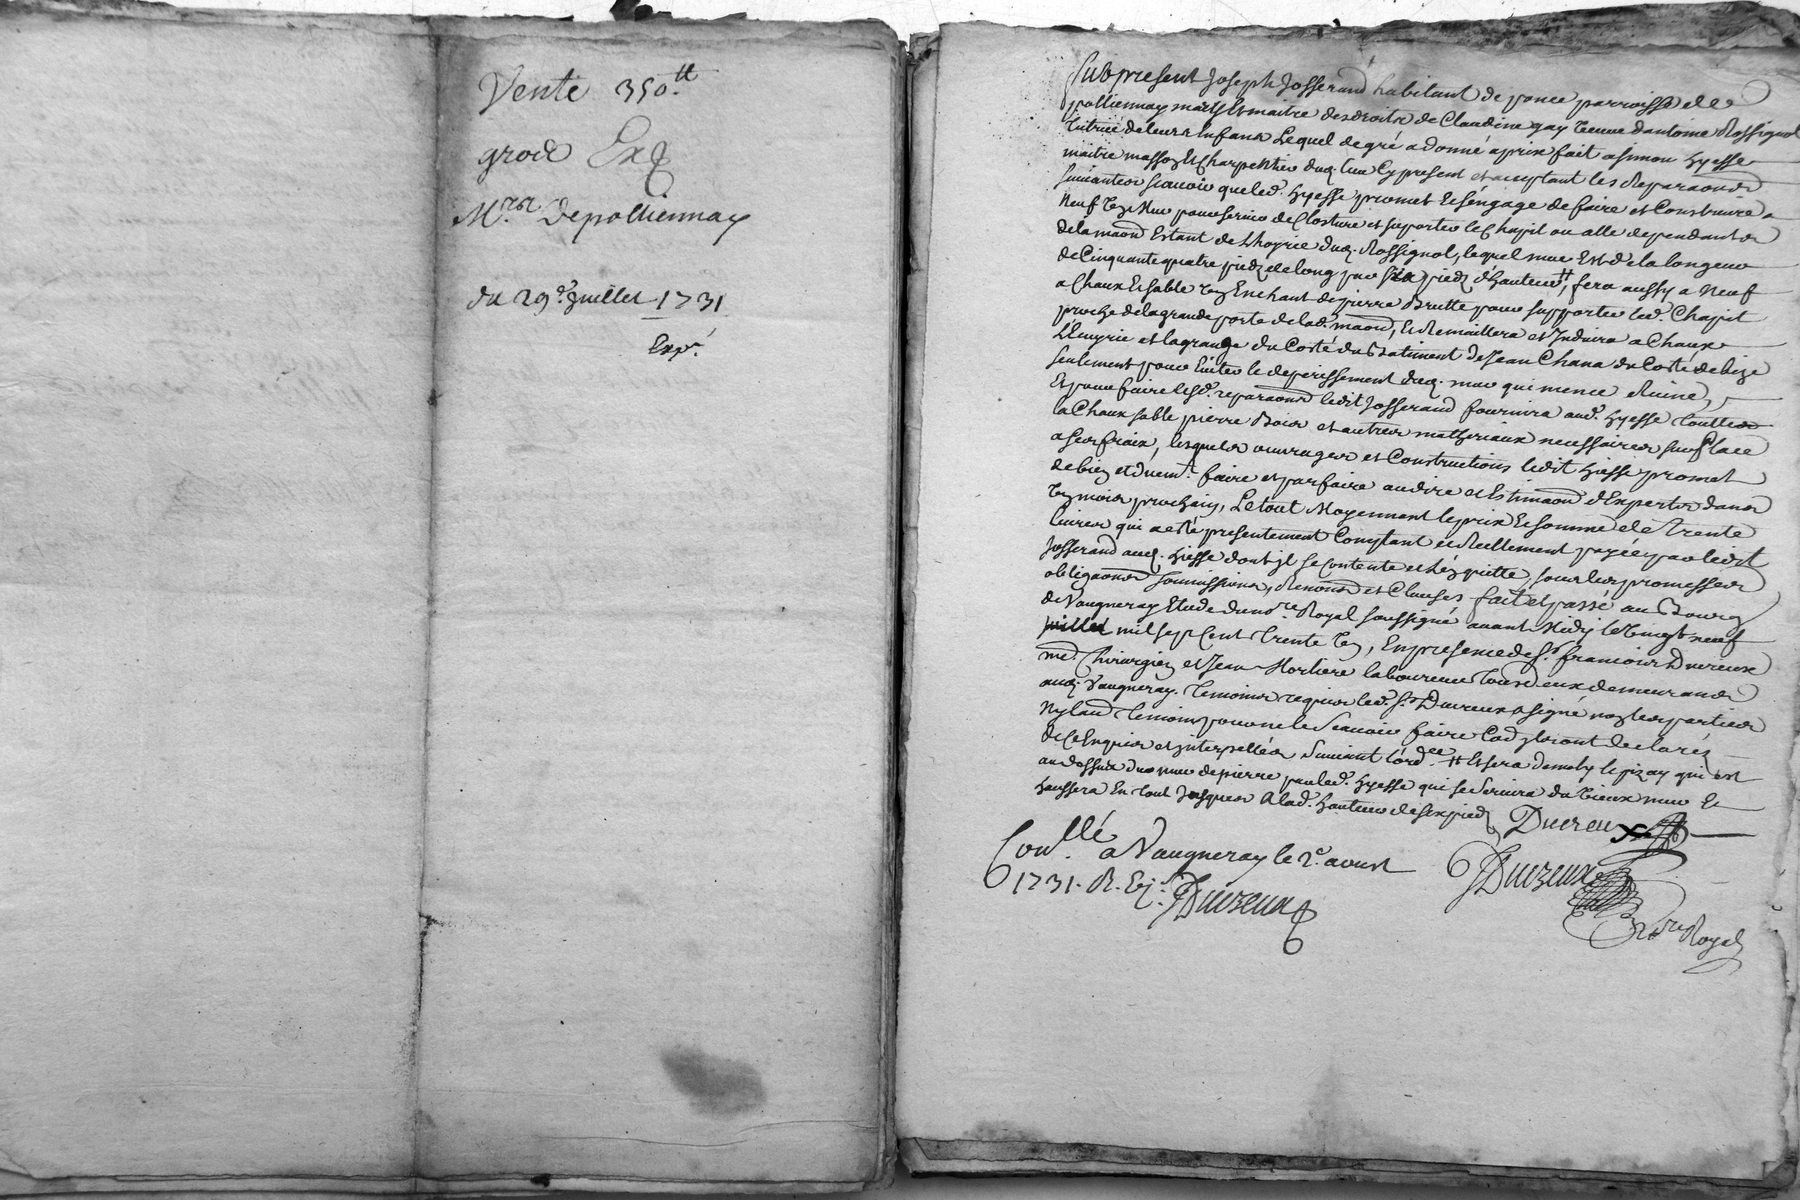 Vente 350.tt
grosse Exp
Mrs. Depolliennay
du 29e. Juillet 1731
Exp.
Sub present Joseph Josserand habitant de ponce parroisse de
polliennay mary et maitre des droits de Claudine gay veuve dantoine Rossignol
tutrice de leurs enfans Lequel de gré a donné a prix fait a simon hyesse
maitre masson et charpentier dud. lieu Cy present et acceptant les Reparaons
suivantes scavoir que led. hyesse promet et s'engage de faire et Construire a
neuf un Mur pour servir de Closture et supporter le Chapit ou alle dependantes
de la maon Estant de L'hoyrie dud. Rossignol, lequel mur Est de la longeur
de Cinquante quatre piedz de long par six piedz d'hauteur #, fera aussy a neuf
a Chaux Et sable un Enchant de pierre Brutte pour supporter led. Chapit
proche de la grande porte de lad. maon, Et Remaillera et Induira a Chaux
L'Ecuyrie et la grange du Costé du Batiment de Jean Chana du Costé de bize
seulement pour Eviter le deperissement dud. mur qui menace Ruine,
Et pour faire lesd. reparaons ledit Josserand fournira aud. hyesse touttes
la Chaux sable pierre Bois et autres matheriaux necessaires sur place
a ses fraix, lesquels ouvrages et Constructions ledit hiesse promet
de bien et duemt. faire et parfaire au dire et Estimaon d'Expertes dans
un mois prochain, Le tout Moyennant le prix Et somme de Trente
Livres qui a esté presentement Comptant et Reellement payée par ledit
Josserand aud. hiesse dont il se contente et L'en quitte, sous les promesses
obligaons soumissions, Renons et Clauses fait et passé au Bourg
de Vaugneray Etude du nore Royal soussigné avant Midy le vingt neuf
juillet mil sept Cent Trente un, En presence de Sr. francois Ducreux
me. Chirurgien et Jean Mortiere laboureur tous deux demeurands
aud. Vaugneray. temoins requis led. Sr. Ducreux a signé non les parties
ny laud temoin pour ne le scavoir faire Cod ils ont declarés
de Ce Enquis et interpellés suivant l'ord.ce # Et sera demoly le pizay qui est
au dessus du mur de pierre par led. hyesse qui se servira du vieux mur Et
haussera En tout Jusques a lad. hauteur de six piedz Ducreux
Con.llé a Vaugneray le 2e. aoust
1731. R. Ej. Ducreux
Ducreux
nre Royal